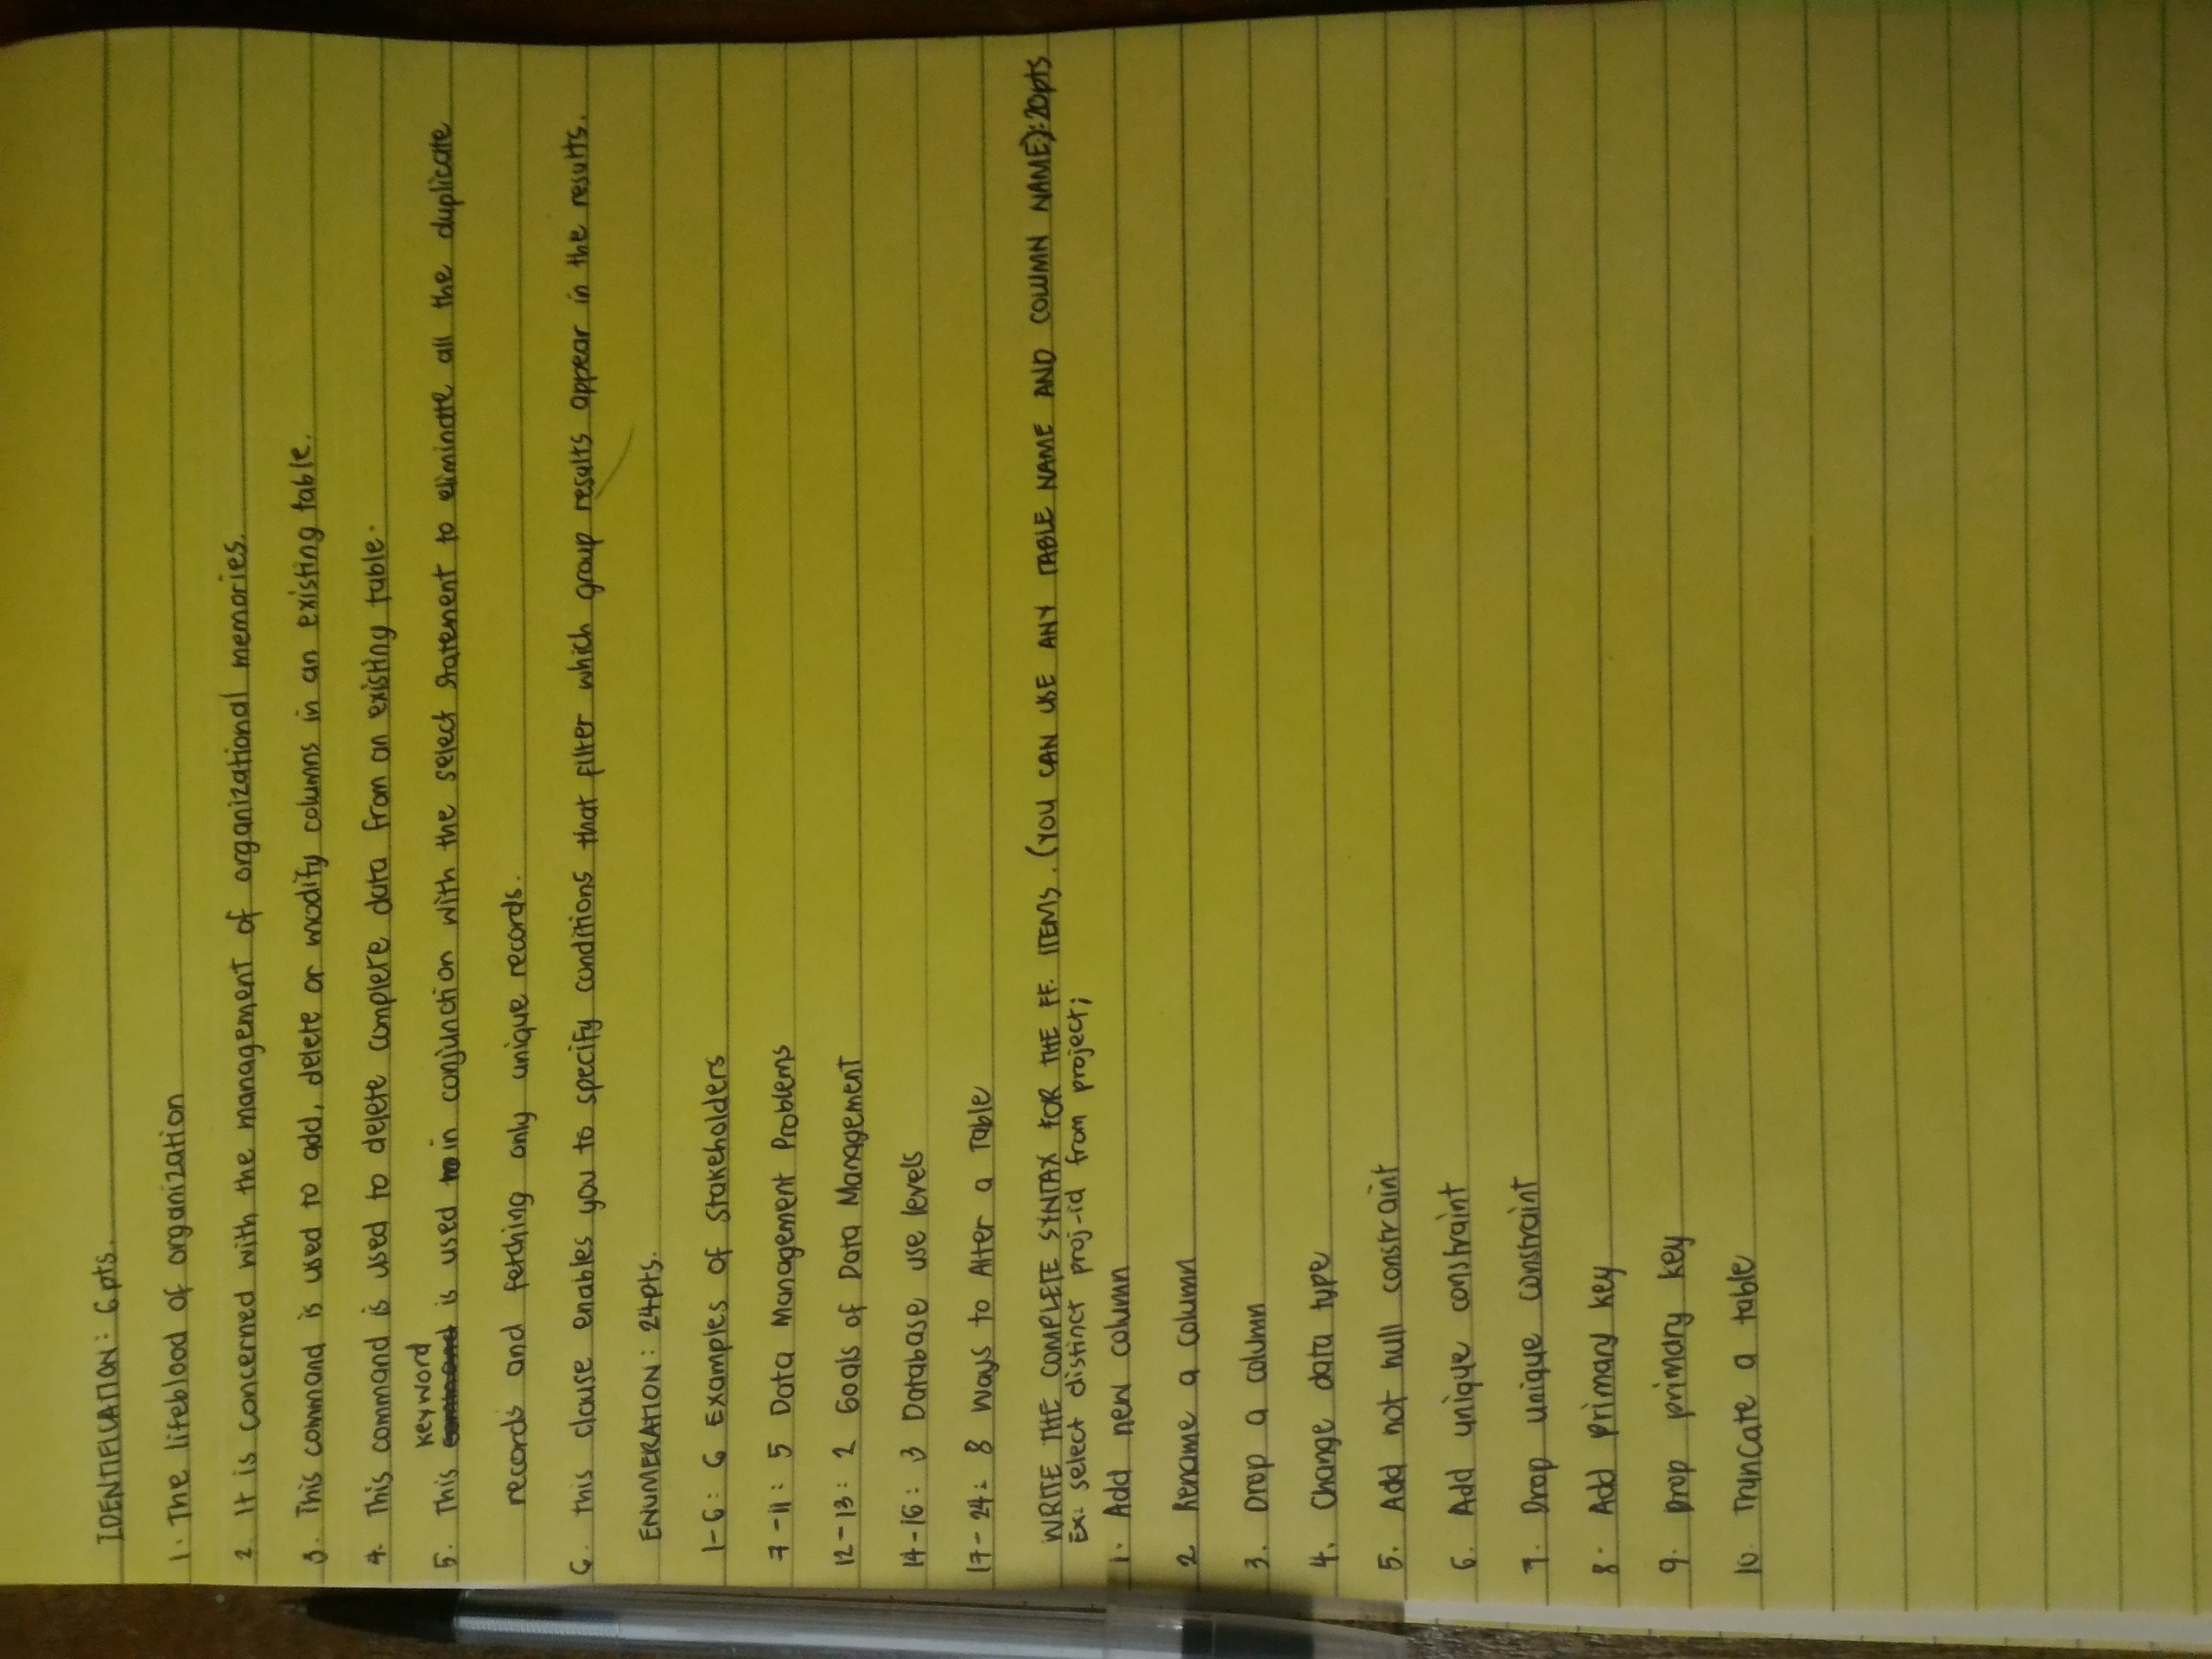 IDENTIFICATION: 6pts.
1. The lifeblood of organization
2. It is concerned with the management of organizational memories.
3. This command is used to add, delete or modify columns in an existing table.
4. This command is used to delete complete data from an existing table.
keyword
5. This command is used to in conjunction with the select statement to eliminate all the duplicate
records and fetching only unique records.
6. This clause enables you to specify conditions that filter which group results appear in the results.
ENUMERATION: 24pts.
1-6: 6 Examples of Stakeholders
7-11: 5 Data Management Problems
12-13: 2 Goals of Data Management
14-16: 3 Database use levels
17-24: 8 Ways to Alter a Table
WRITE THE COMPLETE SYNTAX FOR THE FF. ITEMS. (YOU CAN USE ANY TABLE NAME AND COLUMN NAME): 20pts
Ex: select distinct proj-id from project;
1. Add new column
2. Rename a column
3. Drop a column
4. Change data type
5. Add not null constraint
6. Add unique constraint
7. Drop unique constraint
8. Add primary key
9. Drop primary key
10. Truncate a table